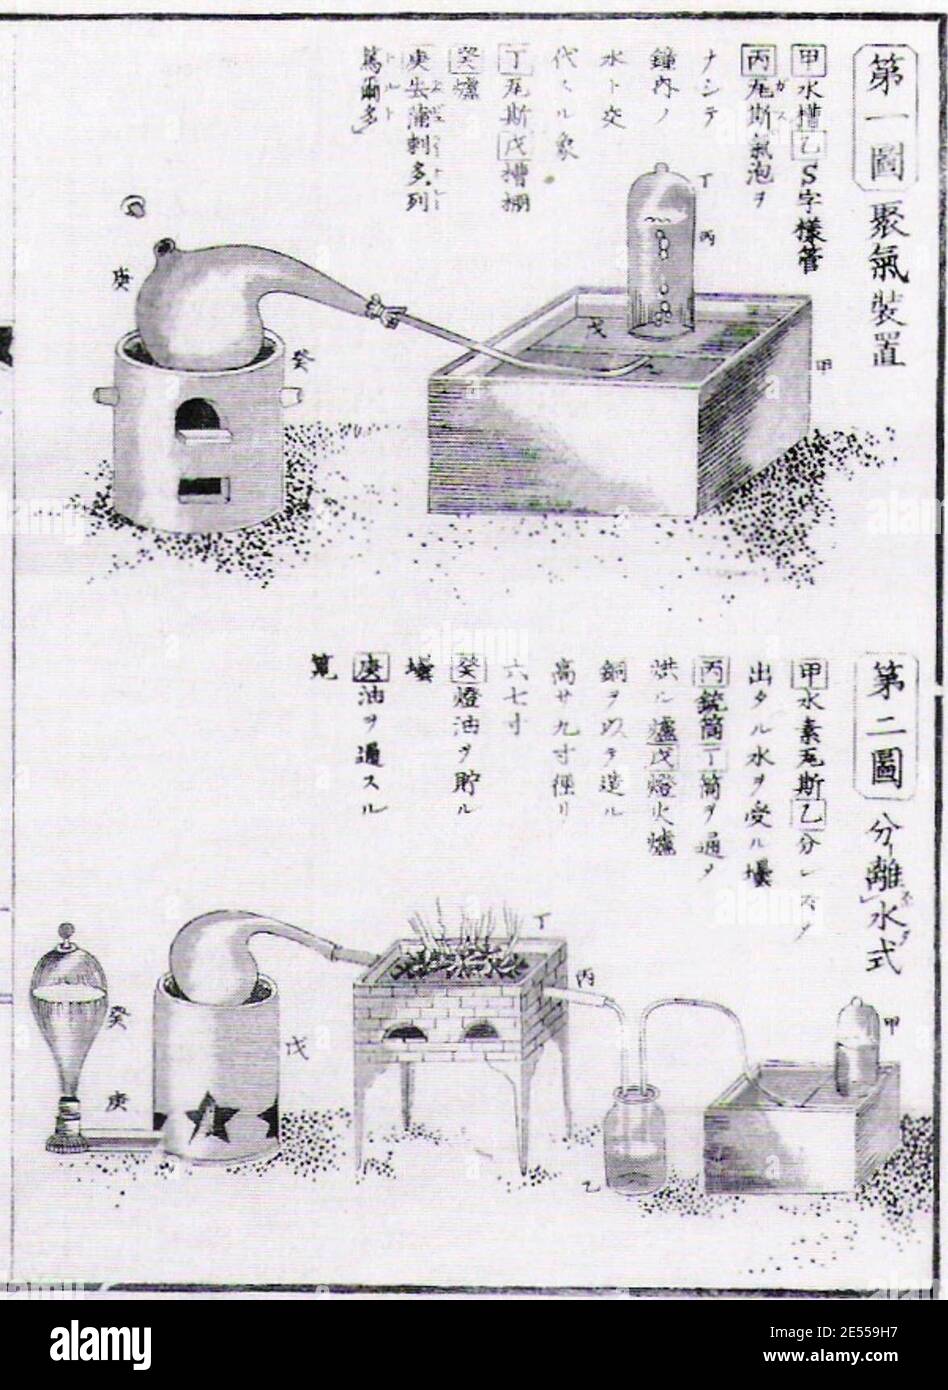 第一圖 聚氣装置
甲水槽乙S字様管
丙瓦斯氣泡ヲ
ガス
ナシテ
鐘内ノ
水ト交
代スル象
丁瓦斯戊槽棚
癸爐
庚失蒲剌多列
篤爾多
トルト
丁
丙
戊
甲
庚
癸
第二圖 分離水式
甲水素瓦斯乙分レズノ
出タル水ヲ受ル壜
丙銃筒丁筒ヲ通タ
洪ル爐戊燈火爐
銅ヲ以テ造ル
高サ九寸徑リ
六七寸
癸燈油ヲ貯ル
壜
庚油ヲ通スル
筧
丁
丙
甲
癸
戊
庚
乙
alamy
Image ID: 2E559H7
www.alamy.com